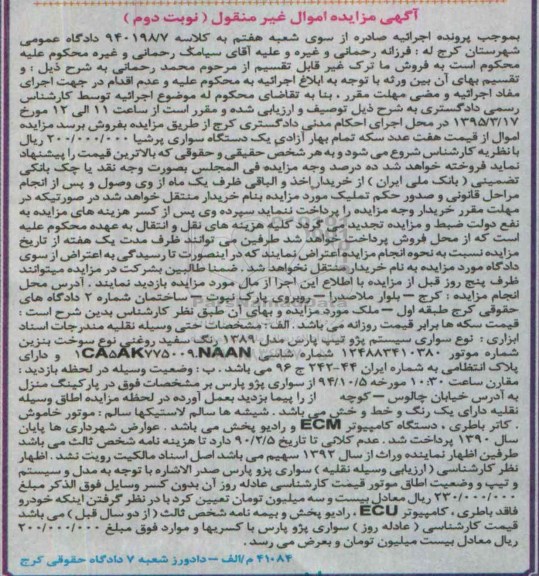 آگهی مزایده اموال غیر منقول ( نوبت دوم )
بموجب پرونده اجرائیه صادره از سوی شعبه هفتم به کلاسه ۹۴۰۱۹۸/۷ دادگاه عمومی
شهرستان کرج له : فرزانه رحمانی و غیره و علیه آقای سیامک رحمانی و غیره محکوم علیه
محکوم است به فروش ما ترک غیر قابل تقسیم از مرحوم محمد رحمانی به شرح ذیل : و
تقسیم بهای آن بین ورثه با توجه به ابلاغ اجرائیه به محکوم علیه و عدم اقدام در جهت اجرای
مفاد اجرائیه و مضی مهلت مقرر ، بنا به تقاضای محکوم له موضوع اجرائیه توسط کارشناس
رسمی دادگستری به شرح ذیل توصیف و ارزیابی شده و مقرر است از ساعت ۱۱ الی ۱۲ مورخ
۱۳۹۵/۳/۱۷ در محل اجرای احکام مدنی دادگستری کرج از طریق مزایده بفروش برسد مزایده
اموال از قیمت هفت عدد سکه تمام بهار آزادی یک دستگاه سواری پرشیا ۲۰۰/۰۰۰/۰۰۰ ریال
با نظر به کارشناس شروع می شود و به هر شخص حقیقی و حقوقی که بالاترین قیمت را پیشنهاد
نماید فروخته خواهد شد ده درصد وجه مزایده فی المجلس بصورت وجه نقد یا چک بانکی
تضمینی ( بانک ملی ایران ) از خریدار اخذ و الباقی ظرف یک ماه از وی وصول و پس از انجام
مراحل قانونی و صدور حکم تملیک مورد مزایده بنام خریدار منتقل خواهد شد در صورتیکه در
مهلت مقرر خریدار وجه مزایده را پرداخت ننماید سپرده وی پس از کسر هزینه های مزایده به
نفع دولت ضبط و مزایده تجدید می گردد کلیه هزینه های نقل و انتقال به عهده محکوم علیه
است که از محل فروش پرداخت خواهد شد طرفین می توانند ظرف مدت یک هفته از تاریخ
مزایده نسبت به نحوه انجام مزایده اعتراض نمایند که در اینصورت تا رسیدگی به اعتراض از سوی
دادگاه مورد مزایده به نام خریدار منتقل نخواهد شد . ضمنا طالبین بشرکت در مزایده میتوانند
ظرف پنج روز قبل از مزایده با اطلاع این اجرا از مال مورد مزایده بازدید نمایند . آدرس محل
انجام مزایده : کرج – بلوار ملاصدرا – روبروی پارک نبوت – ساختمان شماره ۲ دادگاه های
حقوقی کرج طبقه اول – ملک مورد مزایده و بهای آن طبق نظر کارشناس بدین شرح است :
قیمت سکه ها برابر قیمت روزانه می باشد . الف : مشخصات حتی وسیله نقلیه مندرجات اسناد
ابزاری : نوع سواری سیستم پژو تیپ پارس مدل ۱۳۸۹ رنگ سفید روغنی نوع سوخت بنزین
شماره موتور ۱۲۴۸۸۳۴۱۰۳۸۰ شماره شاسی NAAN۰۱CA۵AK۷۷۵۰۰۹ و دارای
پلاک انتظامی به شماره ایران ۴۴-۲۴۲ ج ۹۶ می باشد . ب : وضعیت وسیله در لحظه بازدید :
مقارن ساعت ۱۰:۳۰ مورخه ۹۴/۱۰/۵ از سواری پژو پارس بر مشخصات فوق در پارکینگ منزل
به آدرس خیابان چالوس – کوچه از را پیما بزدید بعمل آورده در لحظه مزایده اطاق وسیله
نقلیه دارای یک رنگ و خط و خش می باشد . شیشه ها سالم لاستیکها سالم : موتور خاموش
. کاتر باطری ، دستگاه کامپیوتر ECM و رادیو پخش می باشد . عوارض شهرداری ها پایان
سال ۱۳۹۰ پرداخت شد . عدم کلانی تا تاریخ ۹۰/۲/۵ دارد تا هزینه نامه شخص ثالث می باشد
طرفین اظهار نماینده وراث از سال ۱۳۹۲ سهیم می باشد اصل اسناد مالکیت رویت نشد . اظهار
نظر کارشناسی ( ارزیابی وسیله نقلیه ) سواری پژو پارس صدر الاشاره با توجه به مدل و سیستم
و تیپ و وضعیت اطاق موتور قیمت کارشناسی عادله روز آن بدون کسر وسایل فوق الذکر مبلغ
۲۳۰/۰۰۰/۰۰۰ ریال معادل بیست و سه میلیون تومان تعیین کرد با در نظر گرفتن اینکه خودرو
فاقد باطری ، کامپیوتر ECU ، رادیو پخش و بیمه نامه شخص ثالث ( از دو سال قبل ) می باشد
قیمت کارشناسی ( عادله روز ) سواری پژو پارس با کسریها و موارد فوق مبلغ ۲۰۰/۰۰۰/۰۰۰
ریال معادل بیست میلیون تومان و بعرض می رسد .
۴۱۰۸۴ م/الف – دادورز شعبه ۷ دادگاه حقوقی کرج